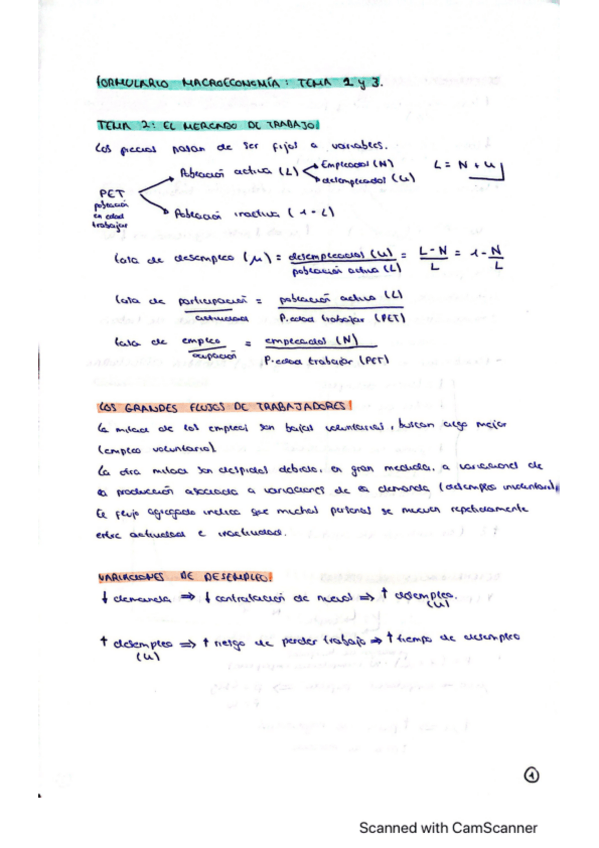 FORMULARIO MACROECONOMÍA: TEMA 2 y 3.
TEMA 2: EL MERCADO DE TRABAJO
Los precios pasan de ser fijos a variables.
PET
población
en edad
trabajar
Población activa (L)
Empleados (N)
desempleados (u)
L = N + u
Población inactiva (1-L)
tasa de desempleo (μ) = desempleados (u) / población activa (L) = L-N / L = 1 - N / L
tasa de participación / actividad = población activa (L) / P. edad trabajar (PET)
tasa de empleo / ocupación = empleados (N) / P. edad trabajar (PET)
LOS GRANDES FLUJOS DE TRABAJADORES:
la mitad de los empleos son bajas voluntarias, buscan algo mejor
(empleo voluntario).
La otra mitad son despidos debido, en gran medida, a variaciones de
la producción asociada a variaciones de la demanda (desempleo involuntario).
El flujo agregado indica que muchas personas se mueven repetidamente
entre actividad e inactividad.
VARIACIONES DE DESEMPLEO:
↓ demanda ⇒ ↓ contratación de nuevos ⇒ ↑ desempleo.
(u)
↑ desempleo ⇒ ↑ riesgo de perder trabajo ⇒ ↑ tiempo de desempleo
(u)
1
Scanned with CamScanner